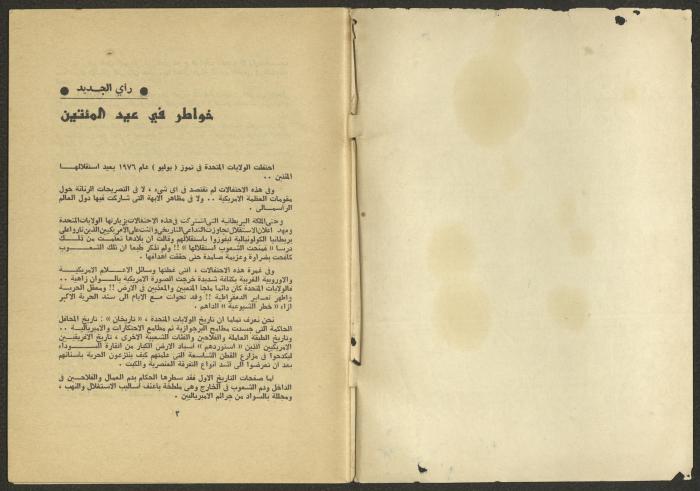 ● رأي الجديد ●
خواطر في عيد المئتين
احتفلت الولايات المتحدة في تموز ( يوليو ) عام ١٩٧٦ بعيد استقلالهـــا
المئتين ..
وفي هذه الاحتفالات لم تقتصد في اي شيء ، لا في التصريحات الرنانة حول
مقومات العظمة الامريكية .. ولا في مظاهر الابهة التي شاركت فيها دول العالم
الراسمــالي .
وحتى الملكة البريطانية التي اشتركت في هذه الاحتفالات بزيارتها الولايات المتحدة
ومهد اعلان الاستقلال تجاوزت التداعي التاريخي واثنت على الامريكيين الذين ثاروا على
بريطانيا الكولونيالية ليفوزوا باستقلالهم وقالت ان بلادها تعلمـت من ذلــك
درسا « فمنحت الشعوب استقلالها » !! ولم تذكر طبعا ان تلك الشعــــوب
كافحت بضراوة وعزيمة صامدة حتى حققت اهدافها .
وفي غمرة هذه الاحتفالات ، التي غطتها وسائل الاعـــلام الامريكيـــة
والاوروبية الغربية بكثافة شديدة خرجت الصورة الامريكية بالــوان زاهية ..
فالولايات المتحدة كان دائما ملجأ المتعبين والمعذبين في الارض !! ومعقل الحريـة
واطهر تعابير الدمقراطية !! وقد تحولت مـع الايام الى سند الحرية الاكبر
ازاء « خطر الشيوعية » الداهم .
نحن نعرف تماما ان تاريخ الولايات المتحدة ، « تاريخان » : تاريخ المحافل
الحاكمة التي جسدت مطامح البرجوازية ثم مطامع الاحتكارات والامبرياليــة ..
وتاريخ الطبقة العاملة والفلاحين والفئات الشعبية الاخرى ، تاريخ الافريقيــين
الامريكيين الذين « استوردهم » اسياد الارض الكبار من القارة الســـوداء
ليكدحوا في مزارع القطن الشاسعة التي علمتهم كيف ينتزعون الحرية باسنانهم
بعد ان تعرضوا الى اشد انواع التفرقة العنصرية والكبت .
اما صفحات التاريخ الاول فقد سطرها الحكام بدم العمال والفلاحــين في
الداخل ودم الشعوب في الخارج وهي ملطخة باعنف اساليب الاستغلال والنهب ،
ومجللة بالسواد من جرائم الامبرياليين .
٣